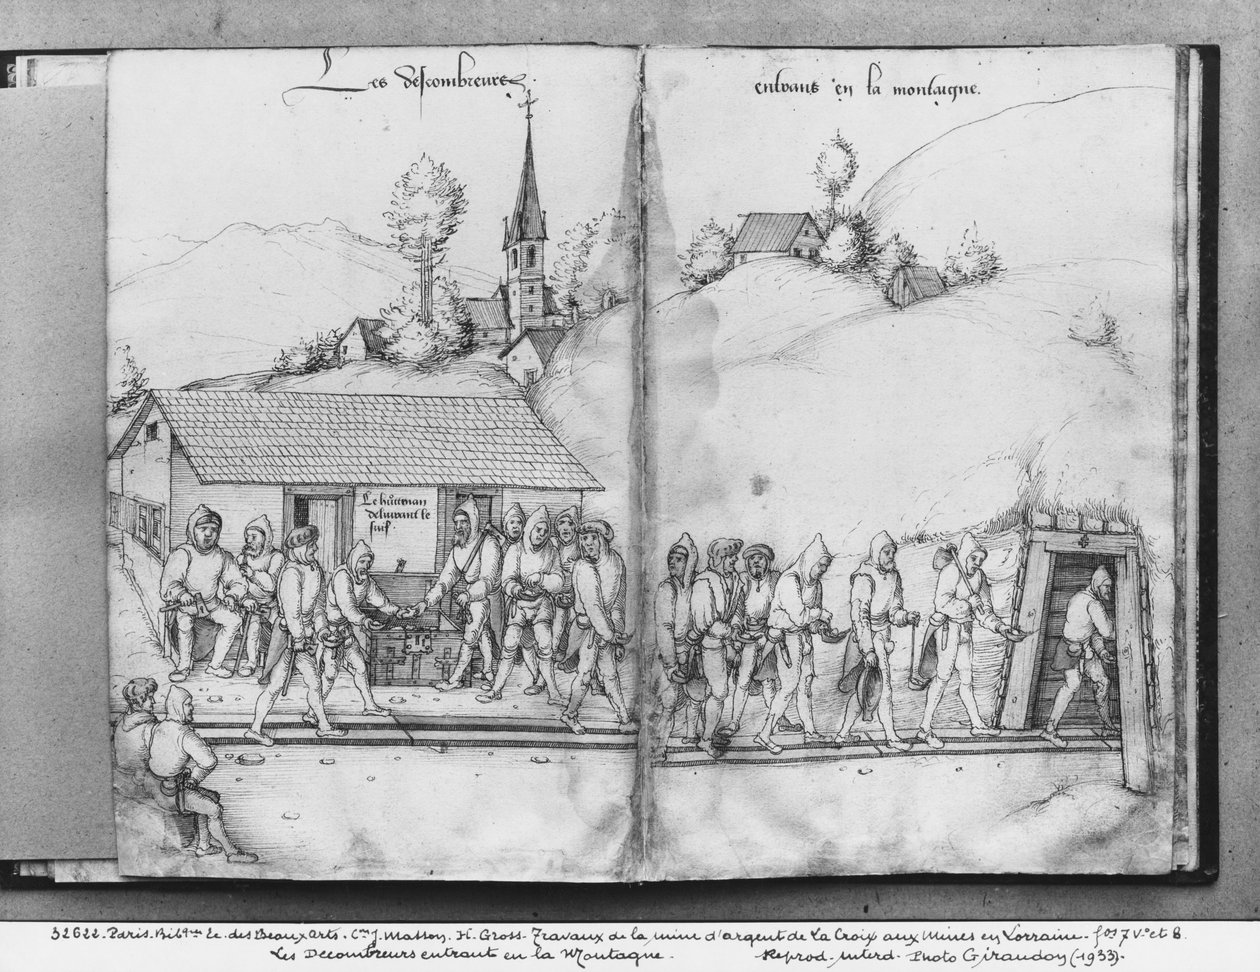 Les descombreurs
entrans en la montaigne.
Le hüttman
deluvrant le
suif.
32622. Paris. Bibl^que Ec. des Beaux arts. C^on J. Masson. H. Gross. Travaux de la mine d'argent de La Croix aux Mines en Lorraine. f^os 7 V° et 8.
Les Decombreurs entrant en la Montagne. Reprod. Interd. Photo Giraudon (1933).